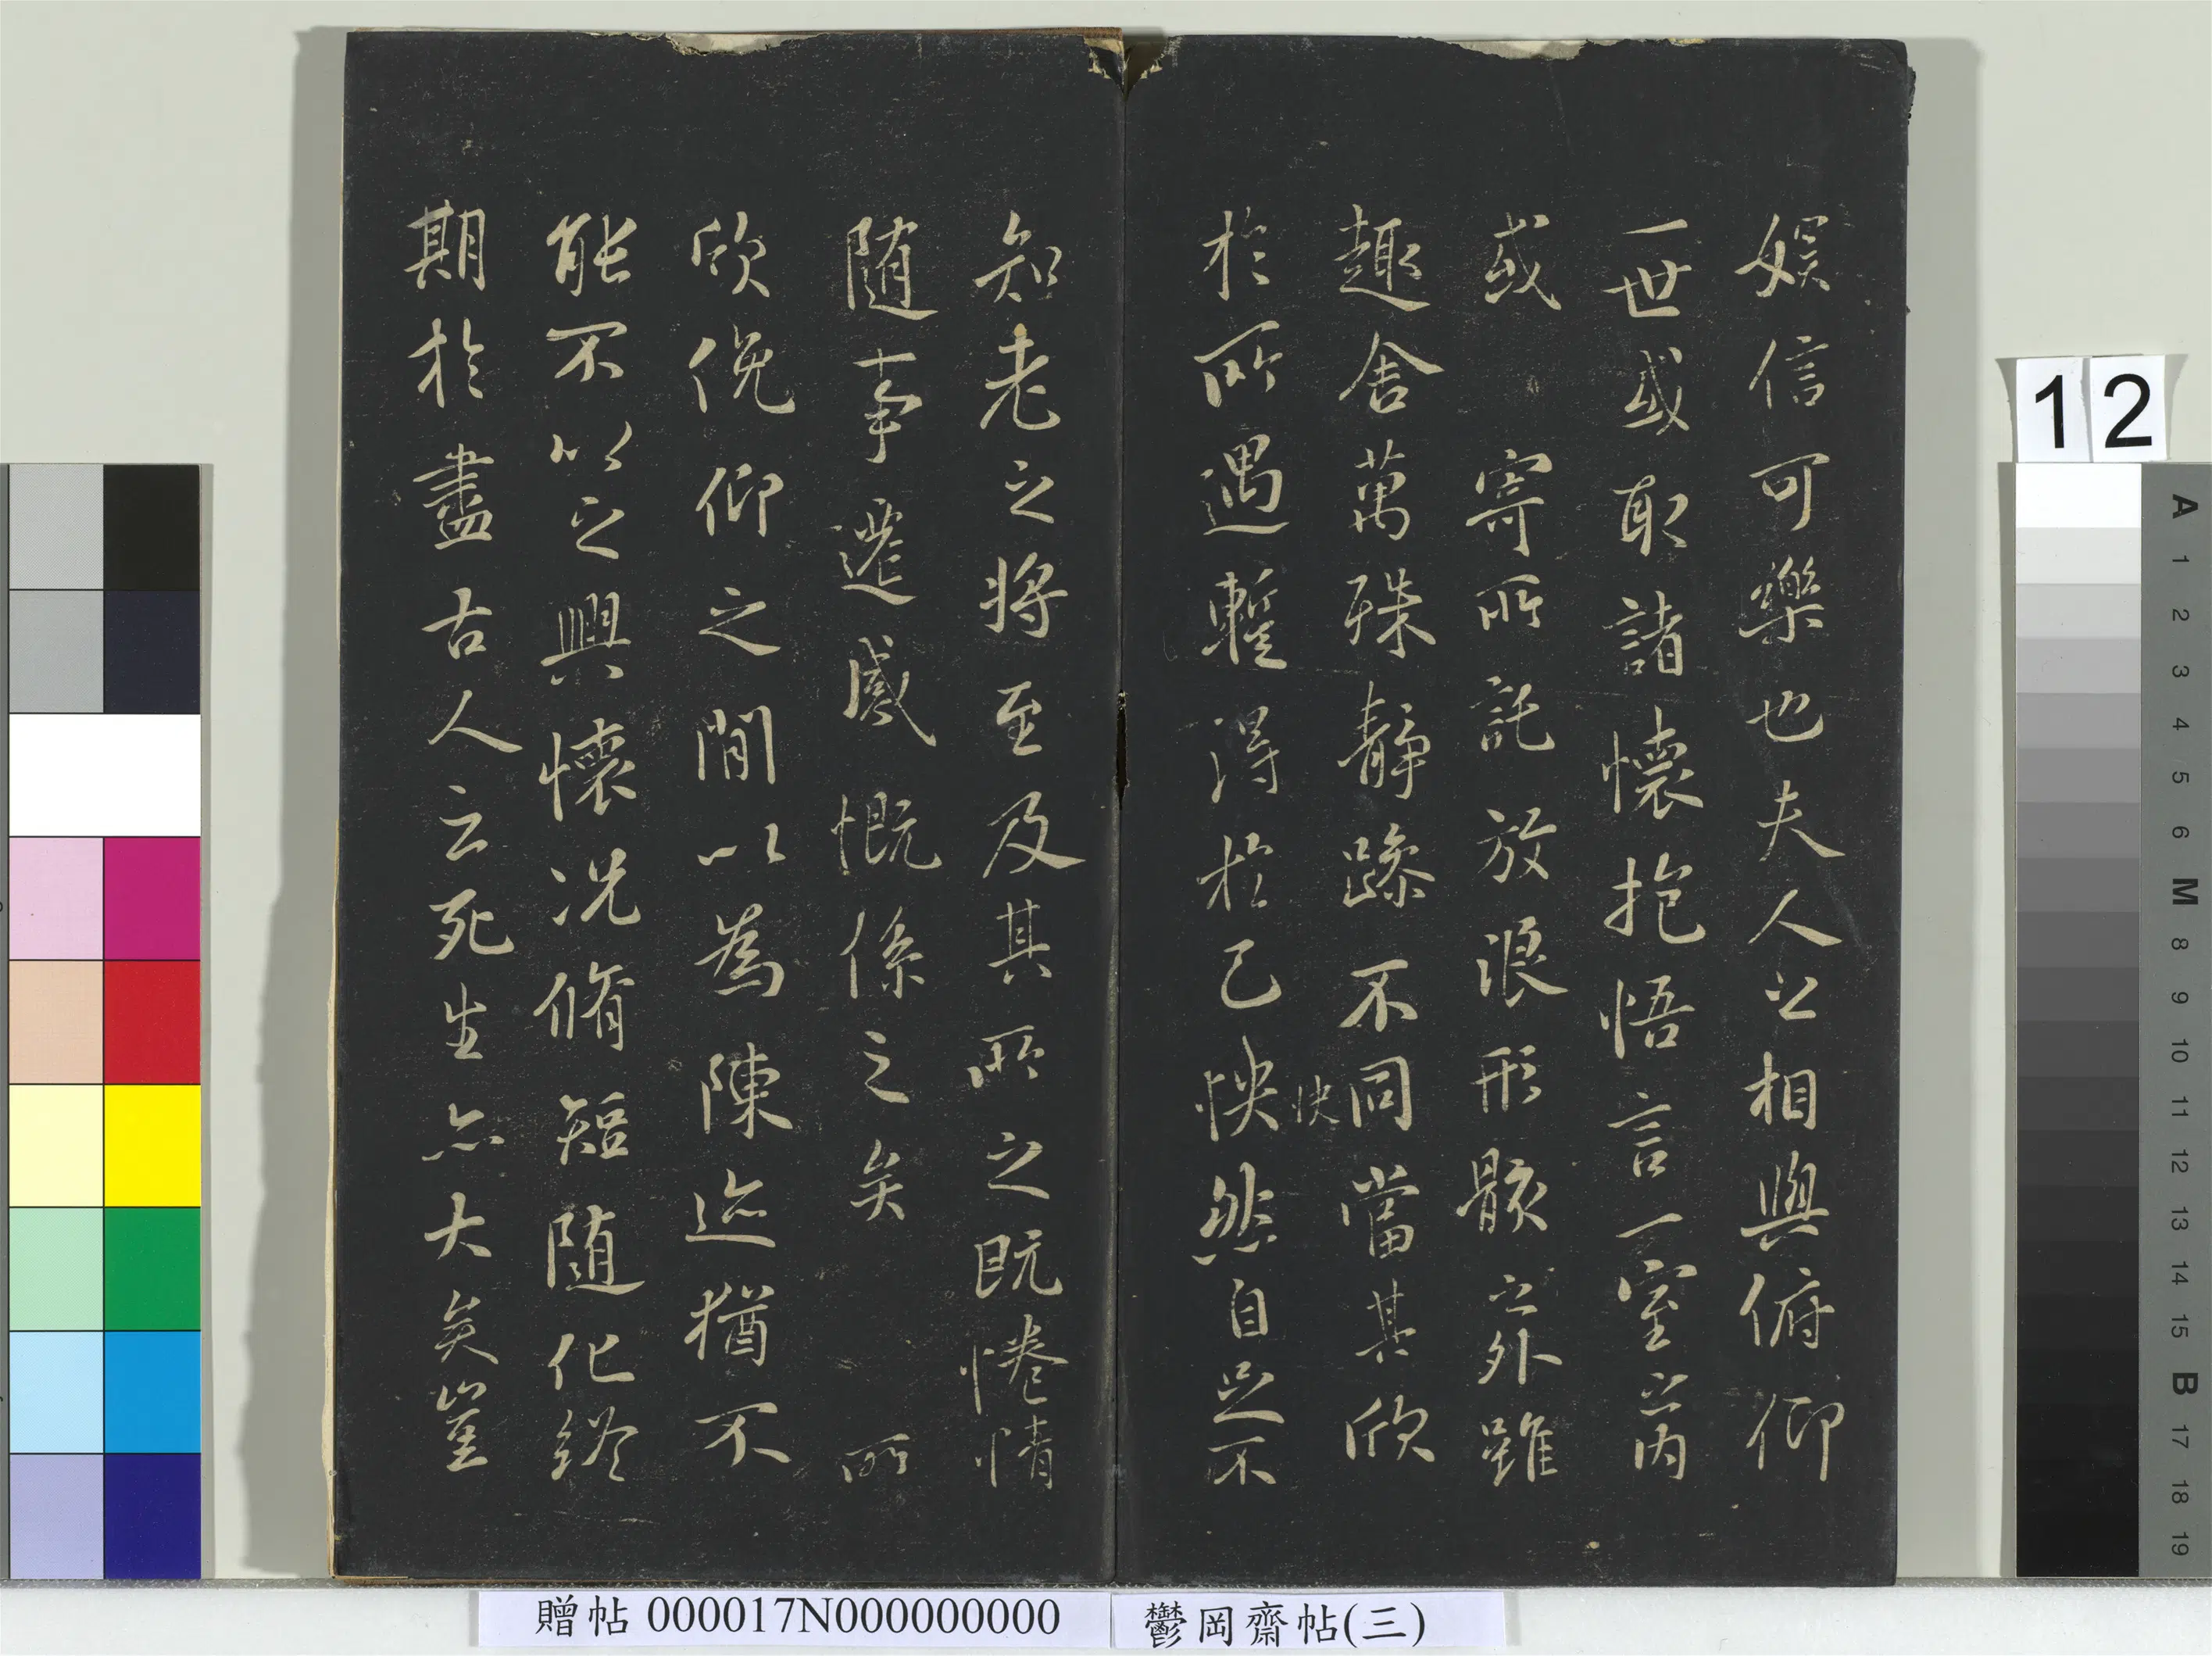 娛信可樂也夫人之相與俯仰
一世或取諸懷抱悟言一室之內
或寄所託放浪形骸之外雖
趣舍萬殊靜躁不同當其欣
快
於所遇暫得於己怏然自足不
知老之將至及其所之既惓情
隨事遷感慨係之矣所
欣俛仰之閒以為陳迹猶不
能不以之興懷況脩短隨化終
期於盡古人云死生亦大矣豈
12
A 1 2 3 4 5 6 M 8 9 10 11 12 13 14 15 B 17 18 19
贈帖 000017N000000000
鬱岡齋帖(三)